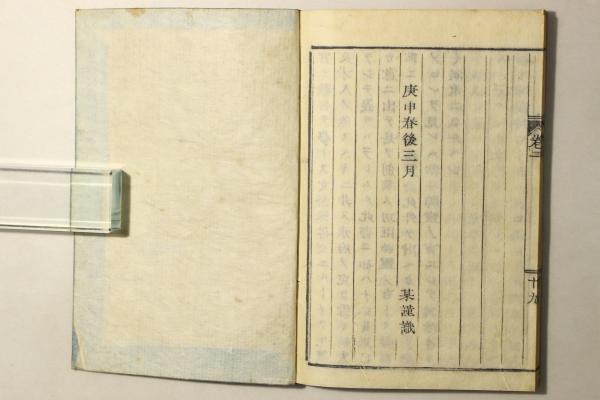 卷二
十九
庚申春後三月
某謹識